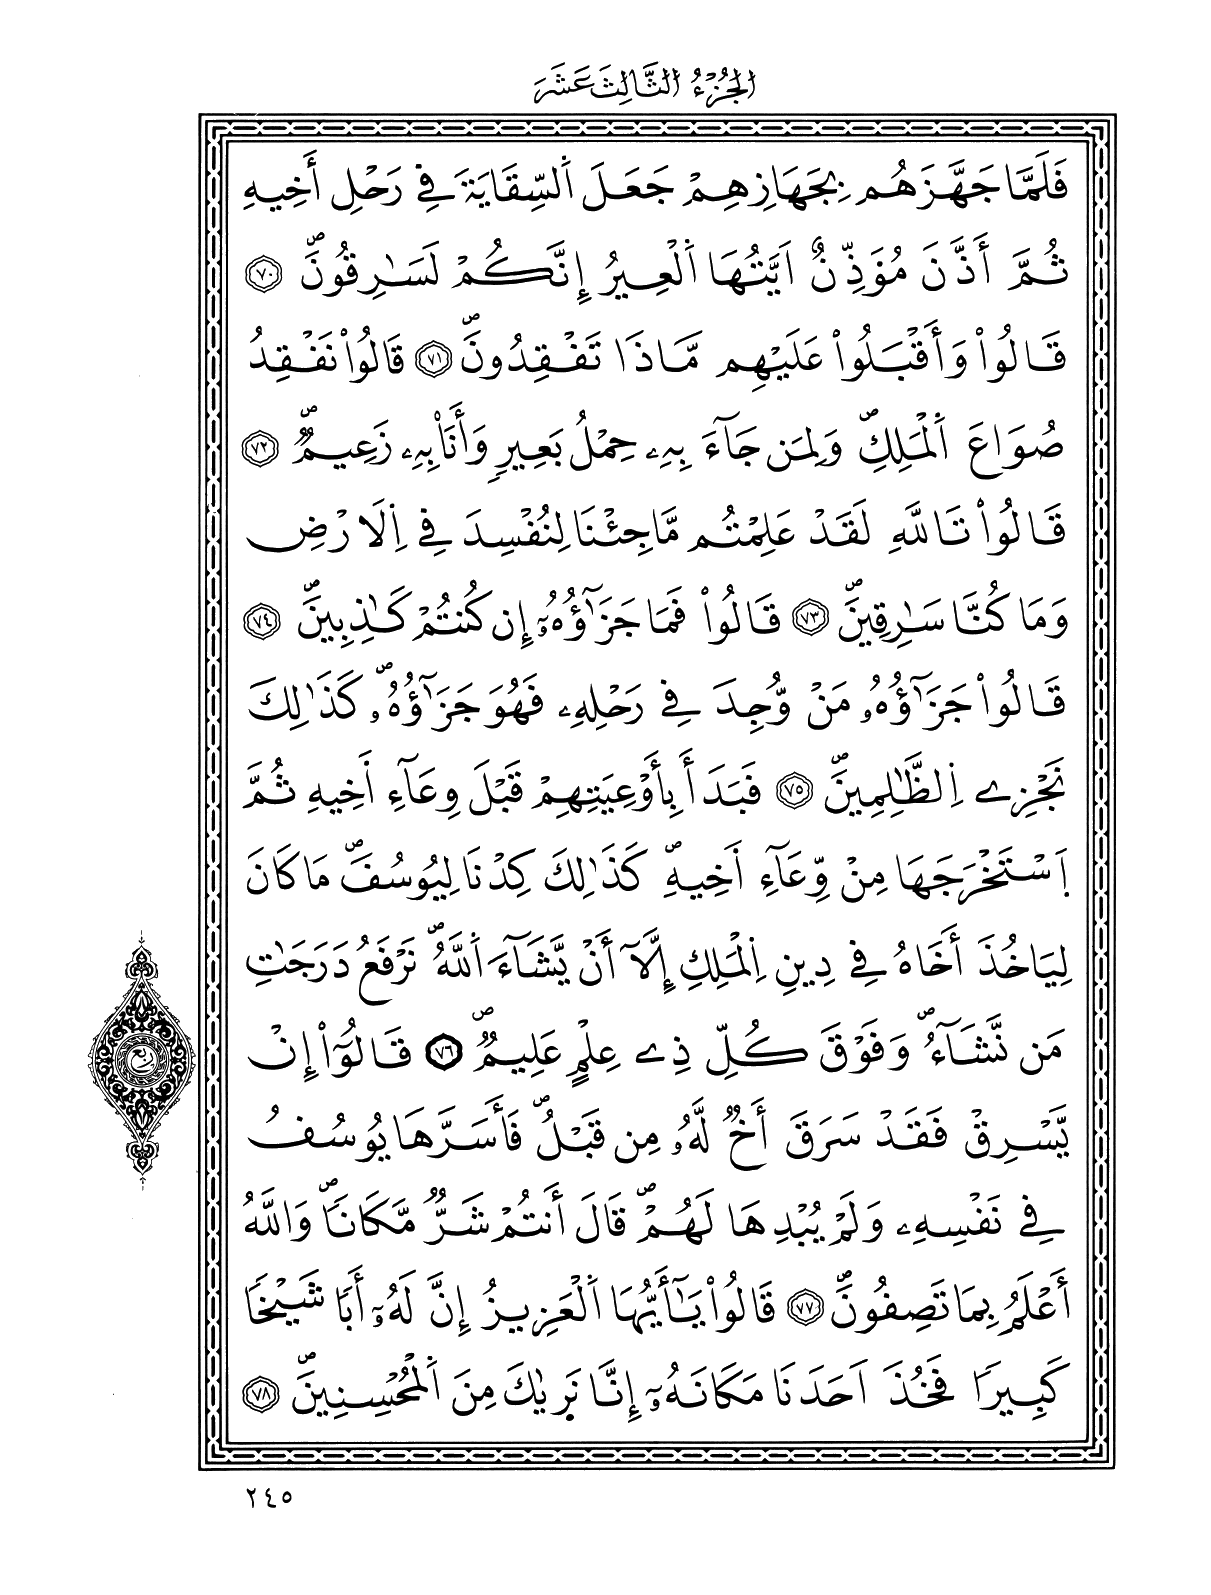 الجُزْءُ الثَّالِثَ عَشَرَ
فَلَمَّا جَهَّزَهُم بِجَهَازِهِمْ جَعَلَ اَ۬لسِّقَايَةَ فِے رَحْلِ أَخِيهِ
ثُمَّ أَذَّنَ مُؤَذِّنٌ اَيَّتُهَا اَ۬لْعِيرُ إِنَّكُمْ لَسَٰرِقُونَۖ ٧٠
قَالُواْ وَأَقْبَلُواْ عَلَيْهِم مَّاذَا تَفْقِدُونَۖ ٧١ قَالُواْ نَفْقِدُ
صُوَاعَ اَ۬لْمَلِكِۖ وَلِمَن جَآءَ بِهِۦ حِمْلُ بَعِيرٍ وَأَنَاْ بِهِۦ زَعِيمٌۖ ٧٢
قَالُواْ تَاللَّهِ لَقَدْ عَلِمْتُم مَّا جِئْنَا لِنُفْسِدَ فِے اِ۬لَارْضِ
وَمَا كُنَّا سَٰرِقِينَۖ ٧٣ قَالُواْ فَمَا جَزَٰٓؤُهُۥٓ إِن كُنتُمْ كَٰذِبِينَۖ ٧٤
قَالُواْ جَزَٰٓؤُهُۥ مَنْ وُّجِدَ فِے رَحْلِهِۦ فَهُوَ جَزَٰٓؤُهُۥۖ كَذَٰلِكَ
نَجْزِے اِ۬لظَّٰلِمِينَۖ ٧٥ فَبَدَأَ بِأَوْعِيَتِهِمْ قَبْلَ وِعَآءِ اَخِيهِ ثُمَّ
اَ۪سْتَخْرَجَهَا مِنْ وِّعَآءِ اَخِيهِۖ كَذَٰلِكَ كِدْنَا لِيُوسُفَۖ مَا كَانَ
لِيَاخُذَ أَخَاهُ فِے دِينِ اِ۬لْمَلِكِ إِلَّآ أَنْ يَّشَآءَ اَ۬للَّهُۖ نَرْفَعُ دَرَجَٰتِ
مَن نَّشَآءُۖ وَفَوْقَ كُلِّ ذِے عِلْمٍ عَلِيمٌۖ ٧٦ قَالُوٓاْ إِنْ
يَّسْرِقْ فَقَدْ سَرَقَ أَخٌ لَّهُۥ مِن قَبْلُۖ فَأَسَرَّهَا يُوسُفُ
فِے نَفْسِهِۦ وَلَمْ يُبْدِهَا لَهُمْۖ قَالَ أَنتُمْ شَرٌّ مَّكَاناًۖ وَاللَّهُ
أَعْلَمُ بِمَا تَصِفُونَۖ ٧٧ قَالُواْ يَٰٓأَيُّهَا اَ۬لْعَزِيزُ إِنَّ لَهُۥٓ أَباً شَيْخاً
كَبِيراً فَخُذَ اَحَدَنَا مَكَانَهُۥٓ إِنَّا نَرَىٰكَ مِنَ اَ۬لْمُحْسِنِينَۖ ٧٨
ربع
٢٤٥